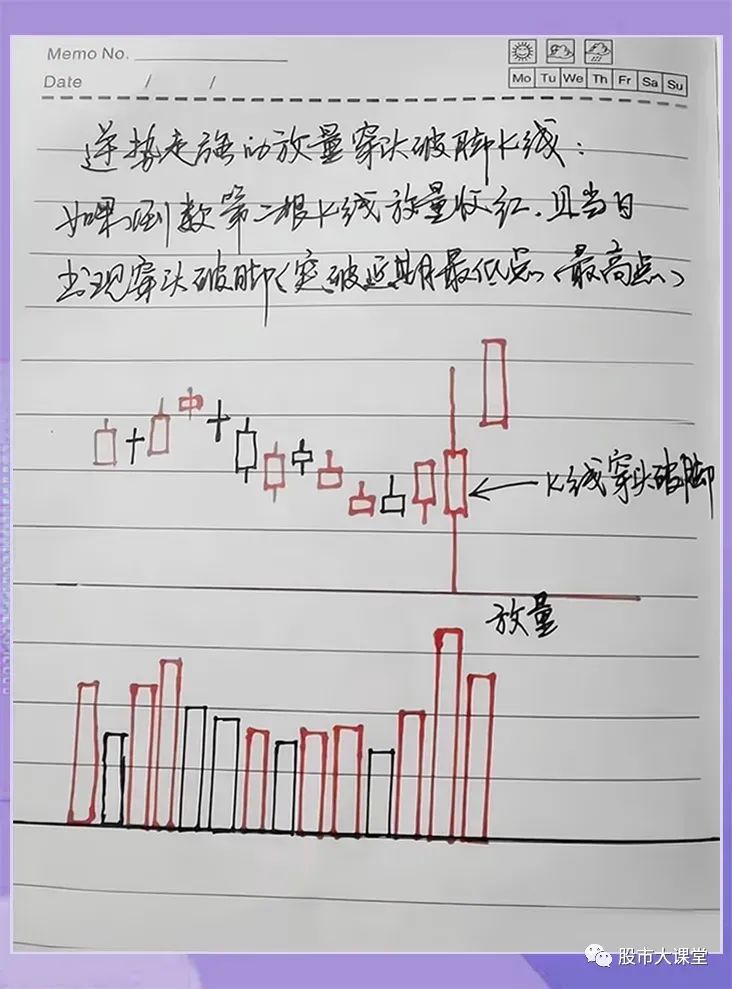 Memo No.
Date / /
Mo Tu We Th Fr Sa Su
逆势走强的放量穿头破脚K线：
如果倒数第二根K线放量收红，且当日
出现穿头破脚（突破近期最低点（最高点）
K线穿头破脚
放量
股市大课堂